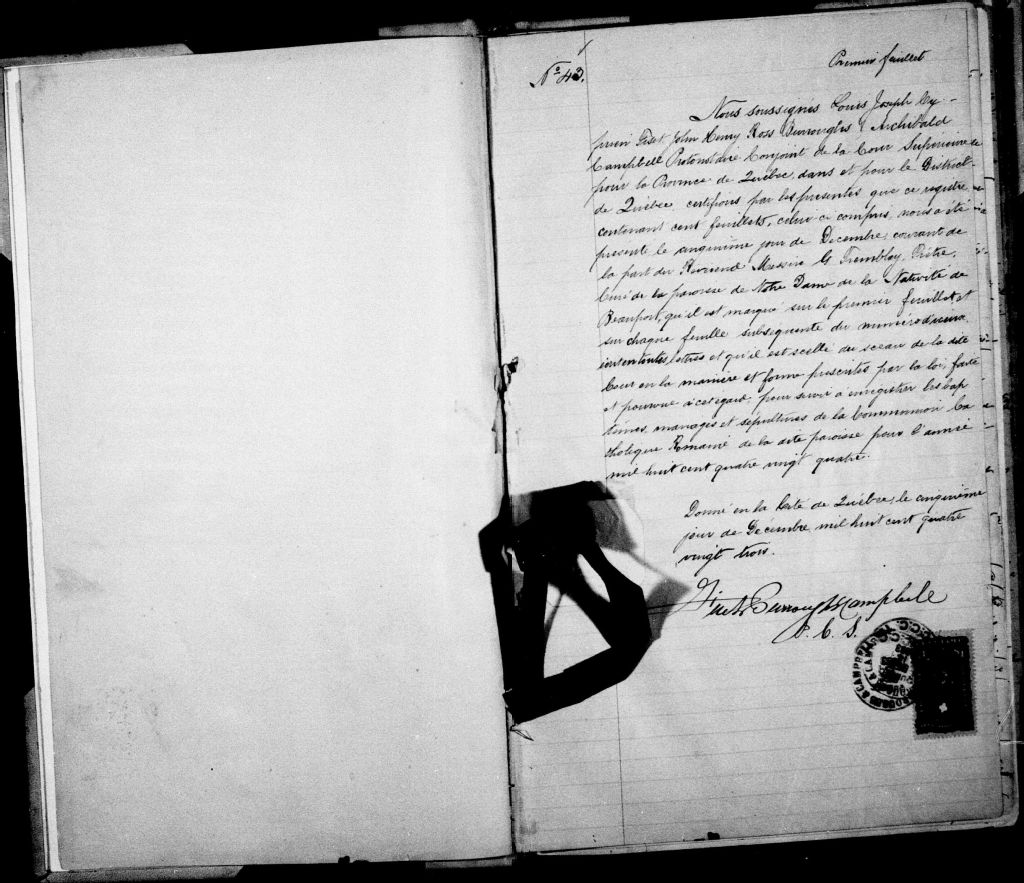 No 43.
Premier feuillet
Nous soussignés Louis Joseph Cy-
prien Fiset, John Henry Ross Burroughs & Archibald
Campbell Protonotaire Conjoint de la Cour Supérieure
pour la Province de Québec, dans et pour le District
de Québec certifions par les présentes que ce registre
contenant cent feuillets, celui ci compris, nous a été
presenté le cinquième jour de Decembre, courant de
la part du Révérend Messire G Tremblay, Prêtre,
Curé de la paroisse de Notre Dame de la Nativité de
Beauport, qu'il est marqué sur le premier feuillet et
sur chaque feuille subséquente du numéro
en toutes lettres et qu'il est scellé du sceau de la dite
Cour en la manière et forme prescrites par la loi, faite
et pourvue à cet égard, pour servir à enregistrer les bap-
têmes, mariages et sépultures de la Communion Ca
tholique Romaine de la dite paroisse pour l'année
mil huit cent quatre vingt quatre.
Donné en la Cité de Québec, le cinquième
jour de Décembre mil huit cent quatre
vingt trois.
Fiset Burroughs Campbell
P. C. S.
& CAMPBELL